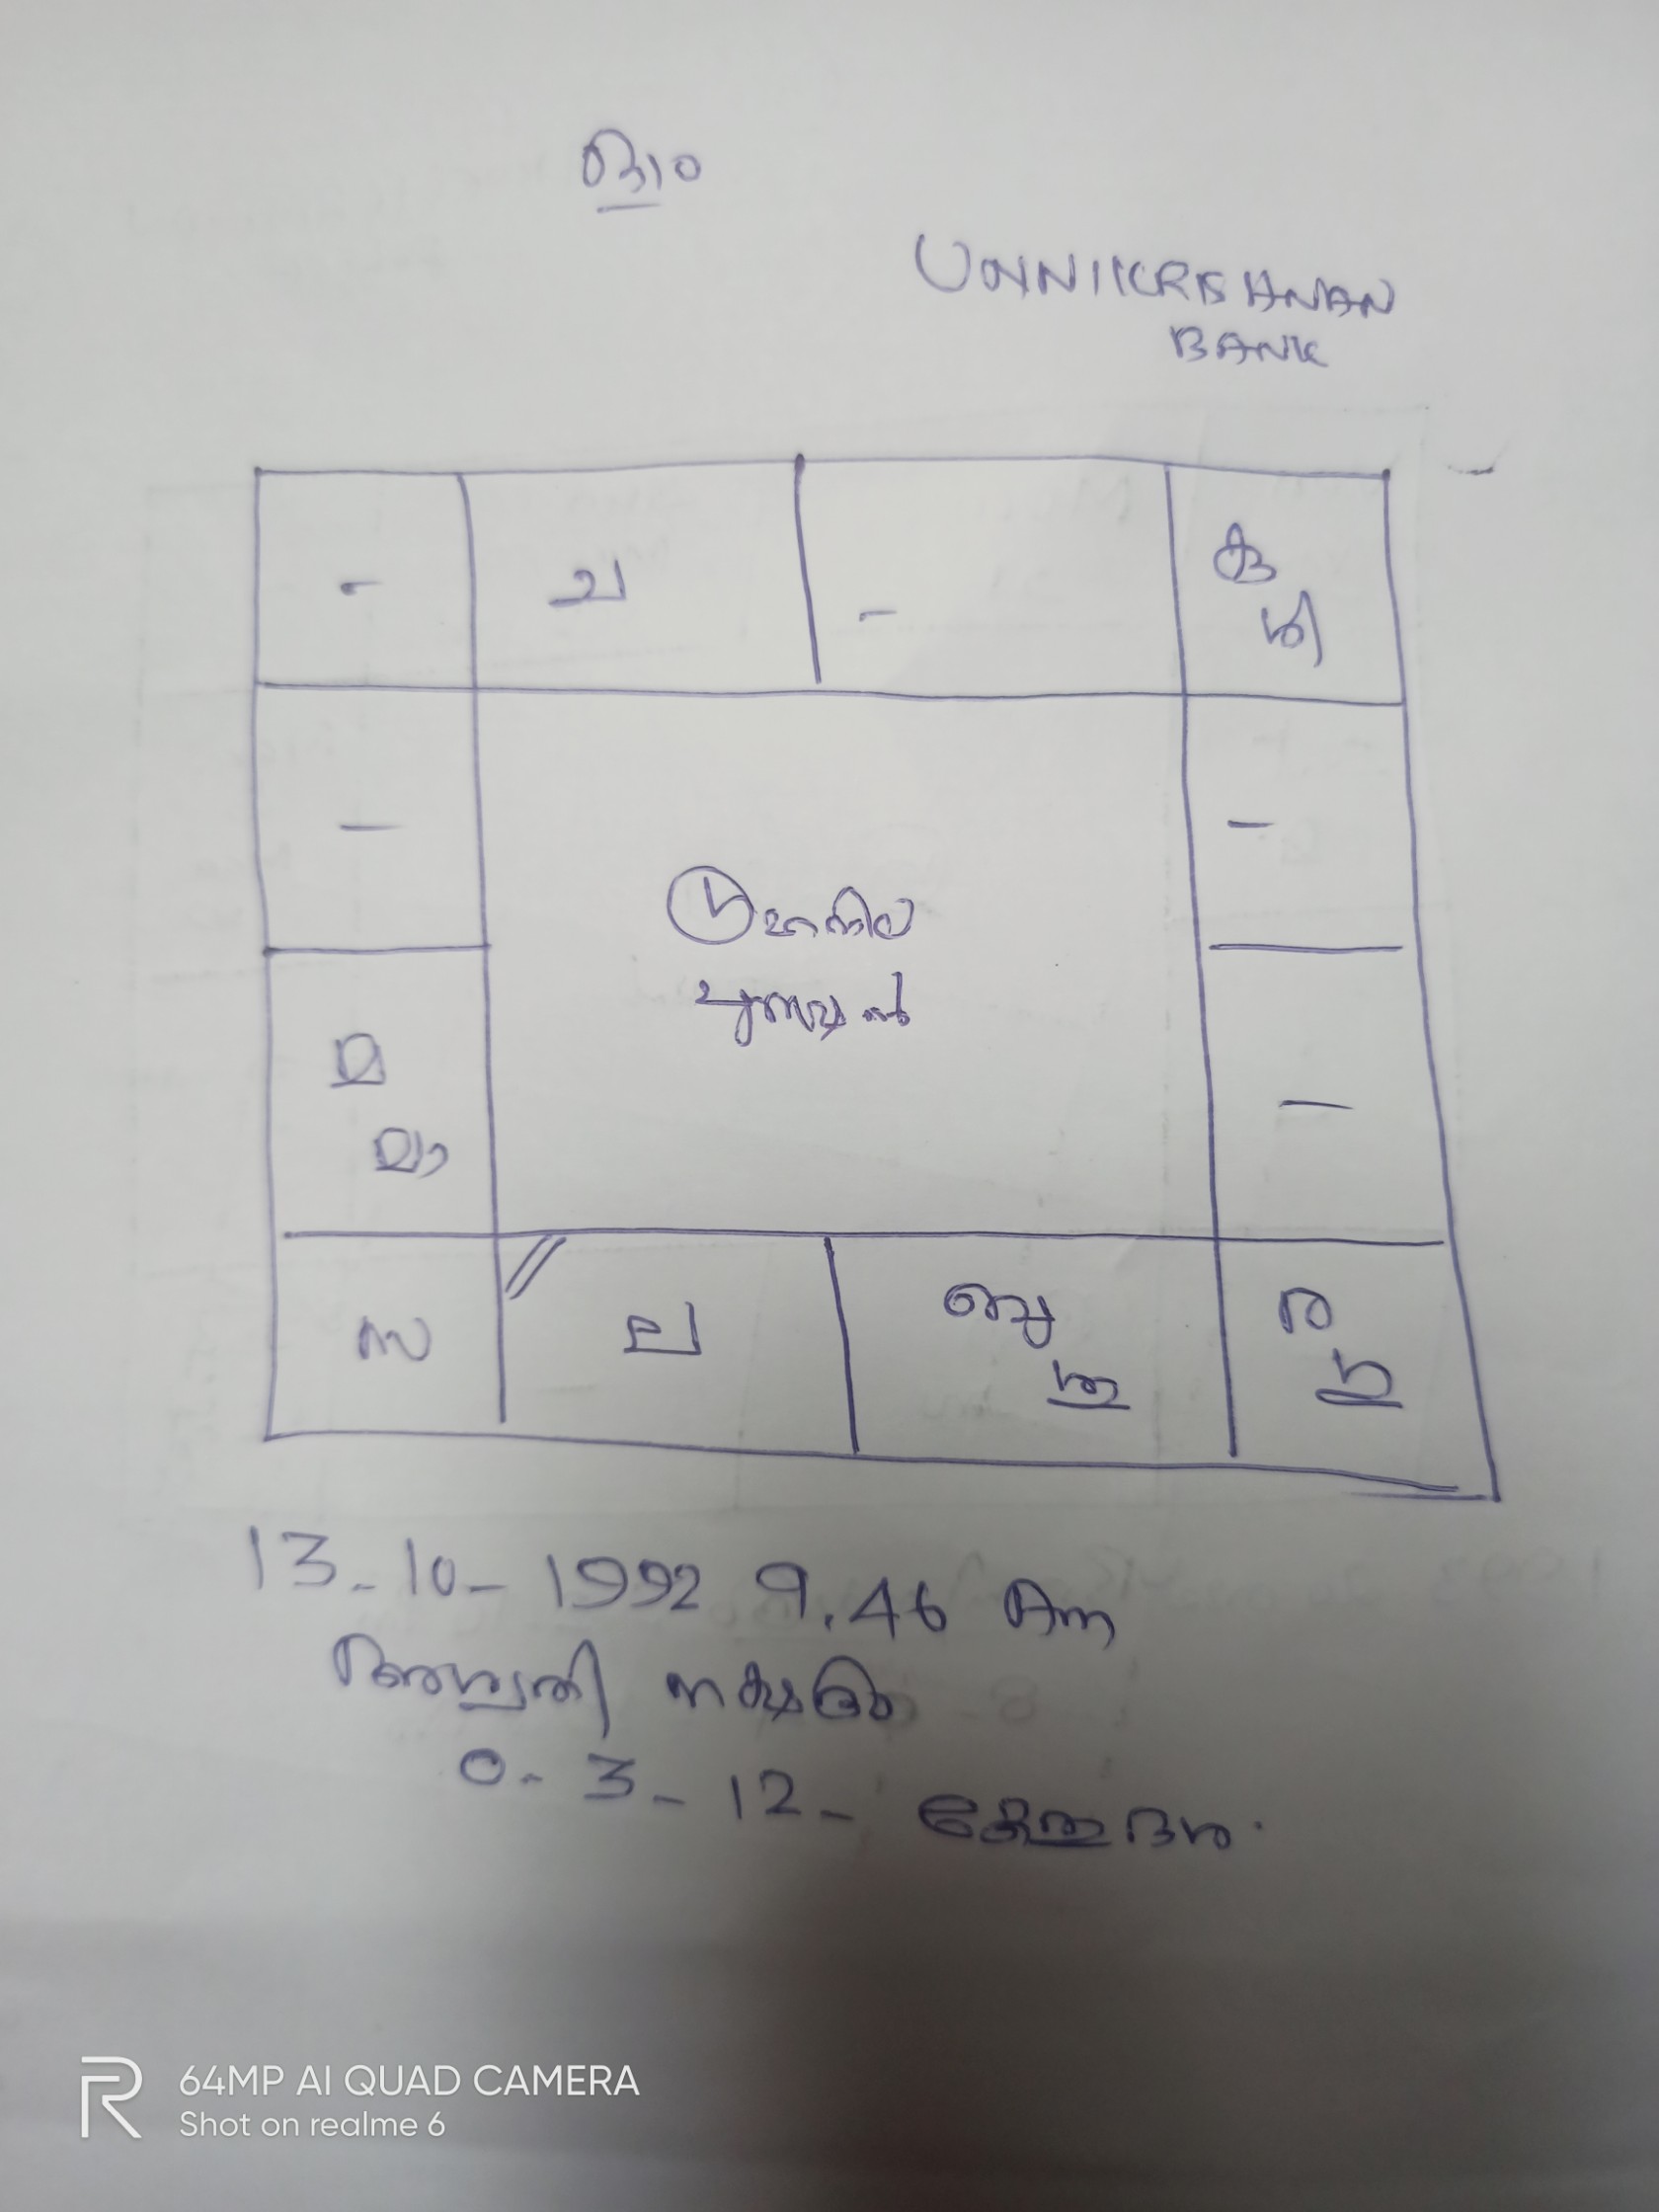 ഓം
UNNIKRISHNAN
BANK
-
ച
-
കു
ശി
-
-
മ
മാ
ഗ്രഹനില
പുരുഷൻ
-
-
സ
ല
ബു
ശു
ര
ഗു
13-10-1992 9.46 Am
അശ്വതി നക്ഷത്രം
0-3-12- കേതു ദശ.
64MP AI QUAD CAMERA
Shot on realme 6